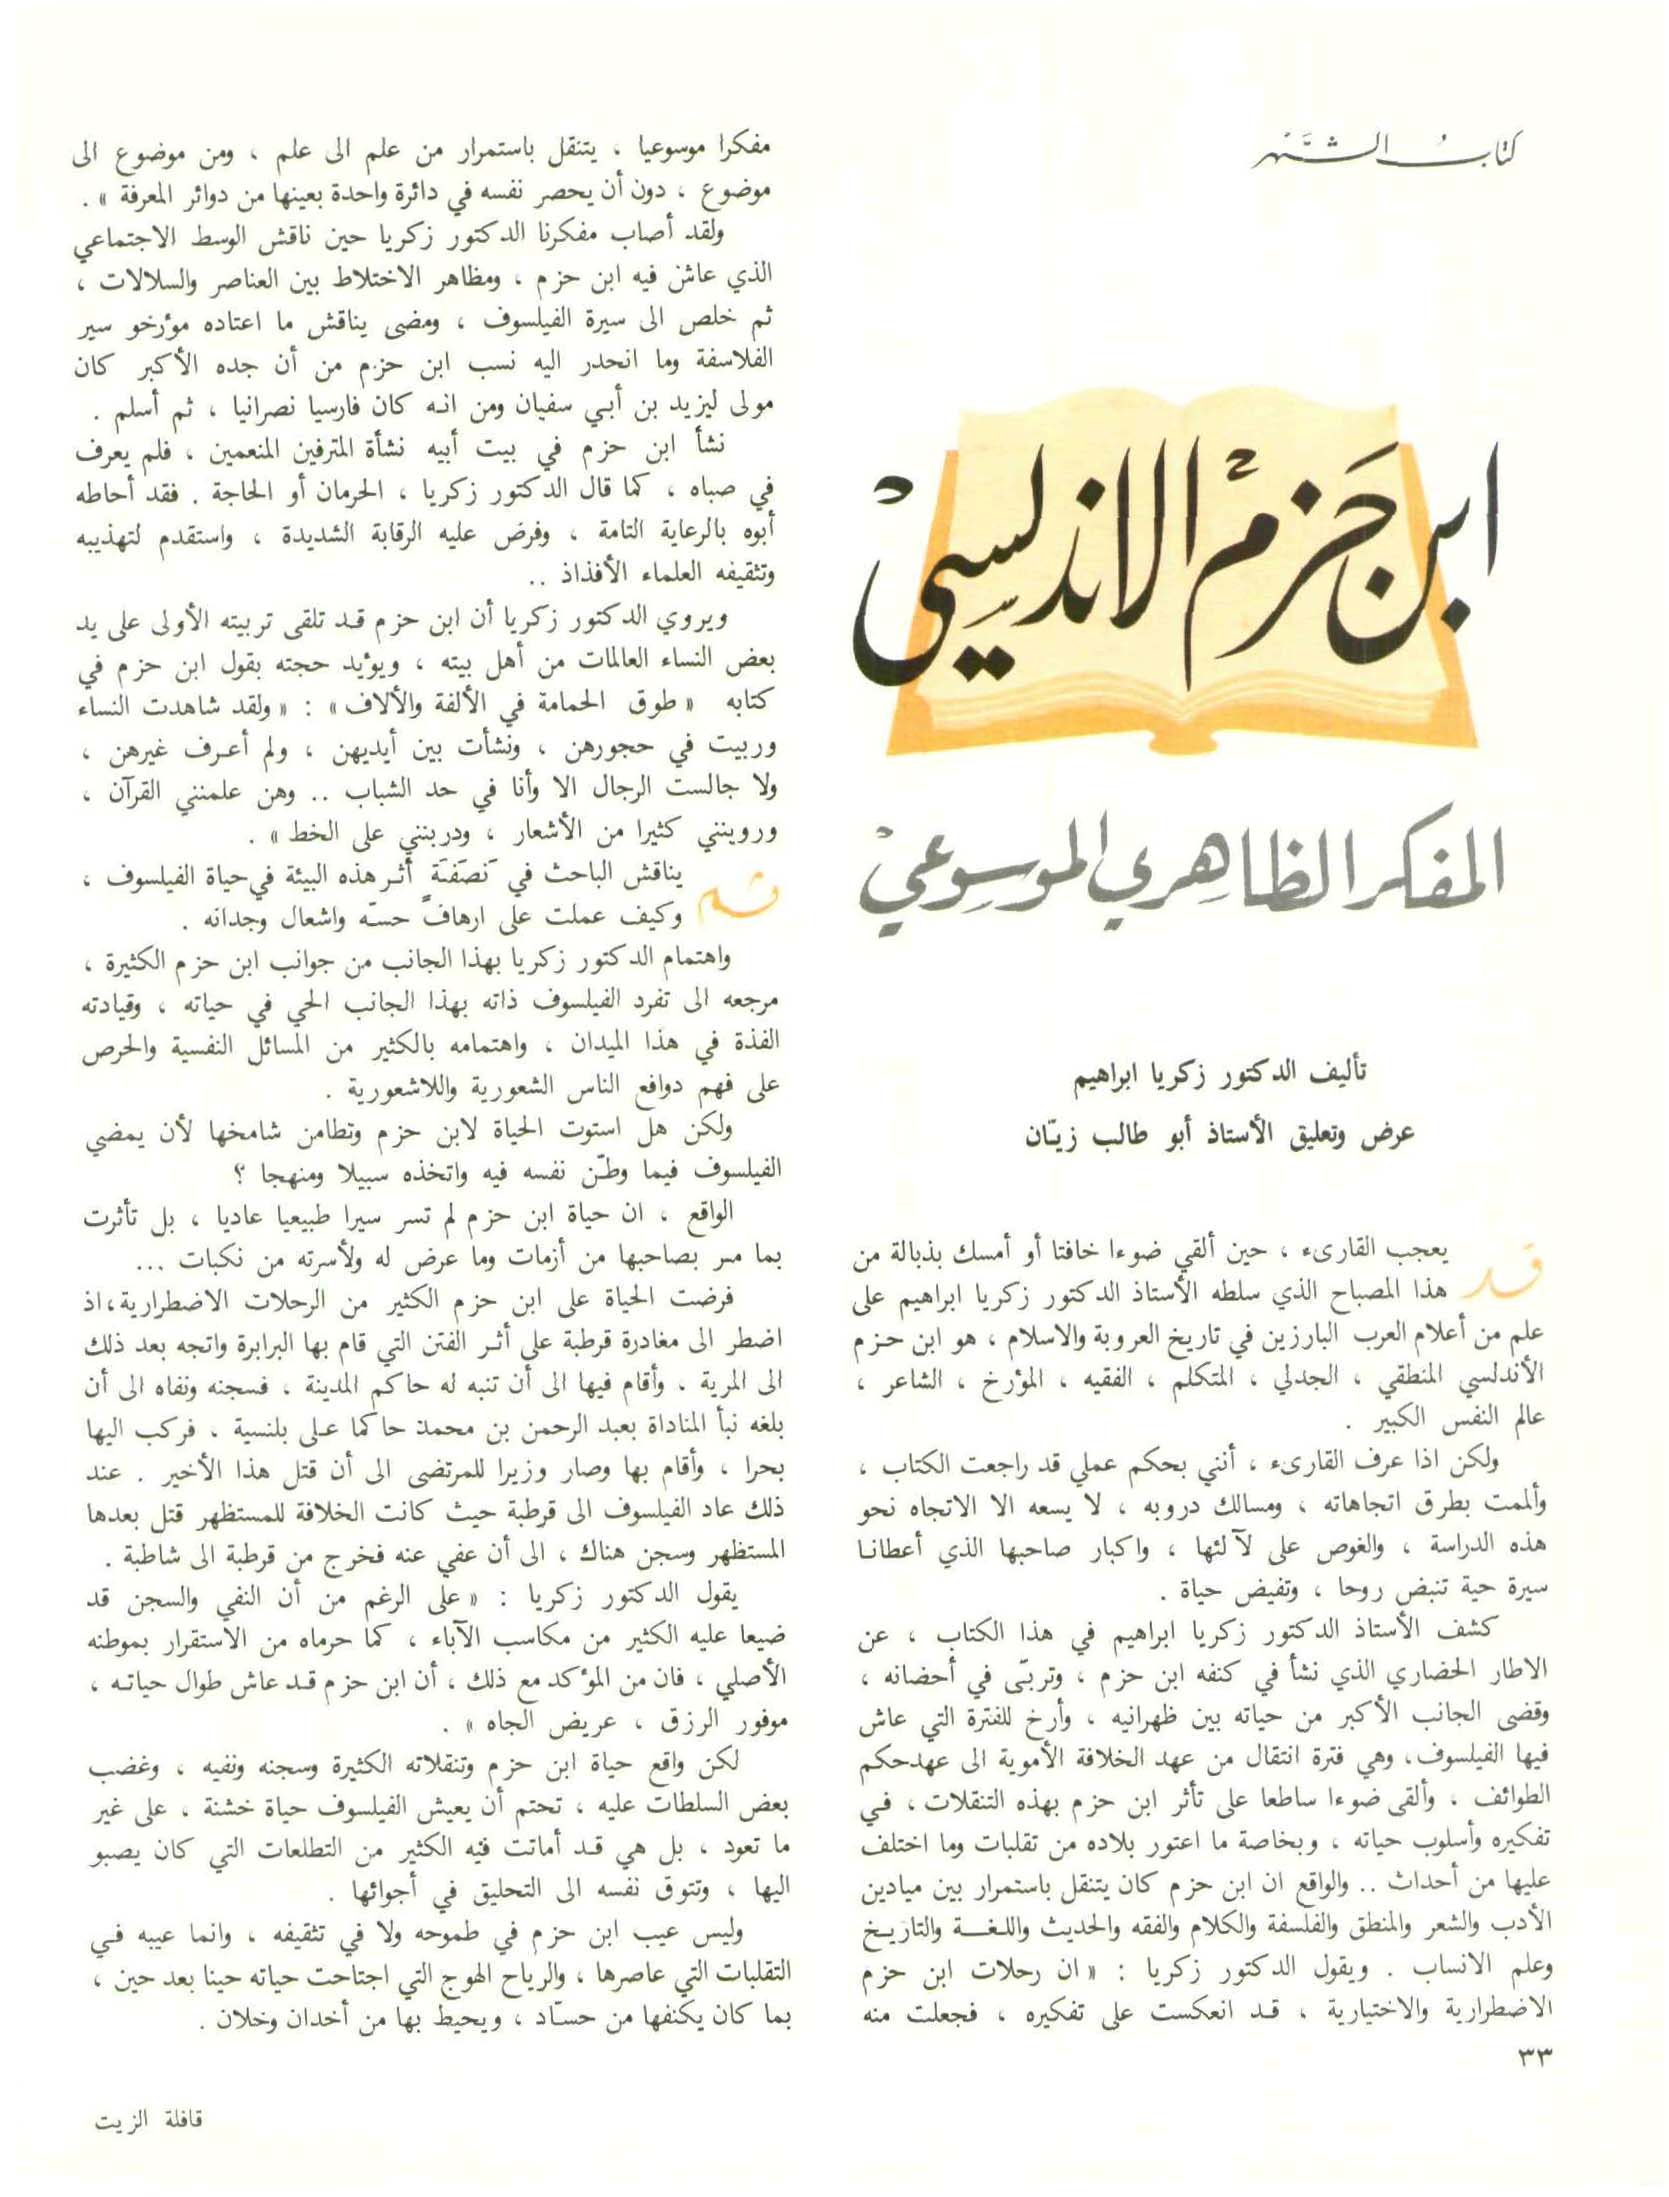 كتاب الشهر
ابن حزم الاندلسي
المفكر الظاهري الموسوعي
تأليف الدكتور زكريا ابراهيم
عرض وتعليق الأستاذ أبو طالب زيّان
قد يعجب القارىء ، حين ألقي ضوءا خافتا أو أمسك بذبالة من
هذا المصباح الذي سلطه الأستاذ الدكتور زكريا ابراهيم على
علم من أعلام العرب البارزين في تاريخ العروبة والاسلام ، هو ابن حزم
الأندلسي المنطقي ، الجدلي ، المتكلم ، الفقيه ، المؤرخ ، الشاعر ،
عالم النفس الكبير .
ولكن اذا عرف القارىء ، أنني بحكم عملي قد راجعت الكتاب ،
وألممت بطرق اتجاهاته ، ومسالك دروبه ، لا يسعه الا الاتجاه نحو
هذه الدراسة ، والغوص على لآلئها ، واكبار صاحبها الذي أعطانا
سيرة حية تنبض روحا ، وتفيض حياة .
كشف الأستاذ الدكتور زكريا ابراهيم في هذا الكتاب ، عن
الاطار الحضاري الذي نشأ في كنفه ابن حزم ، وتربّى في أحضانه ،
وقضى الجانب الأكبر من حياته بين ظهرانيه ، وأرخ للفترة التي عاش
فيها الفيلسوف، وهي فترة انتقال من عهد الخلافة الأموية الى عهدحكم
الطوائف ، وألقى ضوءا ساطعا على تأثر ابن حزم بهذه التنقلات ، في
تفكيره وأسلوب حياته ، وبخاصة ما اعتور بلاده من تقلبات وما اختلف
عليها من أحداث .. والواقع ان ابن حزم كان يتنقل باستمرار بين ميادين
الأدب والشعر والمنطق والفلسفة والكلام والفقه والحديث واللغة والتاريخ
وعلم الانساب . ويقول الدكتور زكريا : « ان رحلات ابن حزم
الاضطرارية والاختيارية ، قد انعكست على تفكيره ، فجعلت منه
مفكرا موسوعيا ، يتنقل باستمرار من علم الى علم ، ومن موضوع الى
موضوع ، دون أن يحصر نفسه في دائرة واحدة بعينها من دوائر المعرفة » .
ولقد أصاب مفكرنا الدكتور زكريا حين ناقش الوسط الاجتماعي
الذي عاش فيه ابن حزم ، ومظاهر الاختلاط بين العناصر والسلالات ،
ثم خلص الى سيرة الفيلسوف ، ومضى يناقش ما اعتاده مؤرخو سير
الفلاسفة وما انحدر اليه نسب ابن حزم من أن جده الأكبر كان
مولى ليزيد بن أبي سفيان ومن انه كان فارسيا نصرانيا ، ثم أسلم .
نشأ ابن حزم في بيت أبيه نشأة المترفين المنعمين ، فلم يعرف
في صباه ، كما قال الدكتور زكريا ، الحرمان أو الحاجة . فقد أحاطه
أبوه بالرعاية التامة ، وفرض عليه الرقابة الشديدة ، واستقدم لتهذيبه
وتثقيفه العلماء الأفذاذ ..
ويروي الدكتور زكريا أن ابن حزم قد تلقى تربيته الأولى على يد
بعض النساء العالمات من أهل بيته ، ويؤيد حجته بقول ابن حزم في
كتابه « طوق الحمامة في الألفة والألاف » : « ولقد شاهدت النساء
وربيت في حجورهن ، ونشأت بين أيديهن ، ولم أعرف غيرهن ،
ولا جالست الرجال الا وأنا في حد الشباب .. وهن علمنني القرآن ،
وروينني كثيرا من الأشعار ، ودربنني على الخط » .
ثم يناقش الباحث في نَصَفَة أثر هذه البيئة في حياة الفيلسوف ،
وكيف عملت على ارهاف حسّه واشعال وجدانه .
واهتمام الدكتور زكريا بهذا الجانب من جوانب ابن حزم الكثيرة ،
مرجعه الى تفرد الفيلسوف ذاته بهذا الجانب الحي في حياته ، وقيادته
الفذة في هذا الميدان ، واهتمامه بالكثير من المسائل النفسية والحرص
على فهم دوافع الناس الشعورية واللاشعورية .
ولكن هل استوت الحياة لابن حزم وتطامن شامخها لأن يمضي
الفيلسوف فيما وطّن نفسه فيه واتخذه سبيلا ومنهجا ؟
الواقع ، ان حياة ابن حزم لم تسر سيرا طبيعيا عاديا ، بل تأثرت
بما مر بصاحبها من أزمات وما عرض له ولأسرته من نكبات ...
فرضت الحياة على ابن حزم الكثير من الرحلات الاضطرارية، اذ
اضطر الى مغادرة قرطبة على أثر الفتن التي قام بها البرابرة واتجه بعد ذلك
الى المرية ، وأقام فيها الى أن تنبه له حاكم المدينة ، فسجنه ونفاه الى أن
بلغه نبأ المناداة بعبد الرحمن بن محمد حاكما على بلنسية ، فركب اليها
بحرا ، وأقام بها وصار وزيرا للمرتضى الى أن قتل هذا الأخير . عند
ذلك عاد الفيلسوف الى قرطبة حيث كانت الخلافة للمستظهر قتل بعدها
المستظهر وسجن هناك ، الى أن عفي عنه فخرج من قرطبة الى شاطبة .
يقول الدكتور زكريا : « على الرغم من أن النفي والسجن قد
ضيعا عليه الكثير من مكاسب الآباء ، كما حرماه من الاستقرار بموطنه
الأصلي ، فان من المؤكد مع ذلك ، أن ابن حزم قد عاش طوال حياته ،
موفور الرزق ، عريض الجاه » .
لكن واقع حياة ابن حزم وتنقلاته الكثيرة وسجنه ونفيه ، وغضب
بعض السلطات عليه ، تحتم أن يعيش الفيلسوف حياة خشنة ، على غير
ما تعود ، بل هي قد أماتت فيه الكثير من التطلعات التي كان يصبو
اليها ، وتتوق نفسه الى التحليق في أجوائها .
وليس عيب ابن حزم في طموحه ولا في تثقيفه ، وانما عيبه في
التقلبات التي عاصرها ، والرياح الهوج التي اجتاحت حياته حينا بعد حين ،
بما كان يكنفها من حسّاد ، ويحيط بها من أخدان وخلان .
٣٣
قافلة الزيت